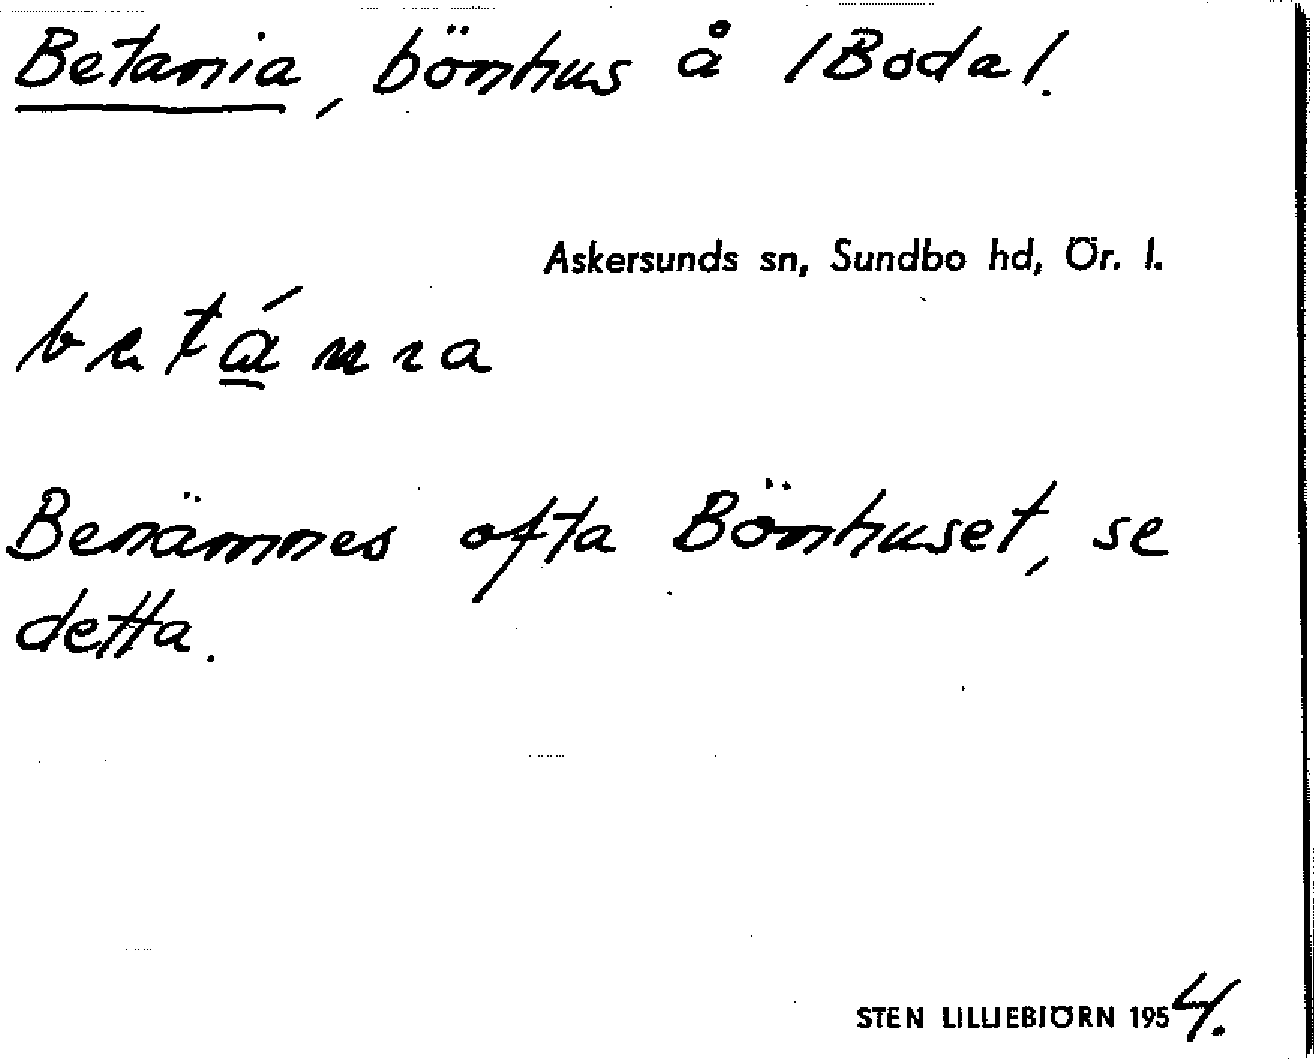 Betania, bönhus å /Boda/.
Askersunds sn, Sundbo hd, Ör. l.
betánıa
Benämnes ofta Bönhuset, se
detta.
STEN LILLIEBJÖRN 1954.